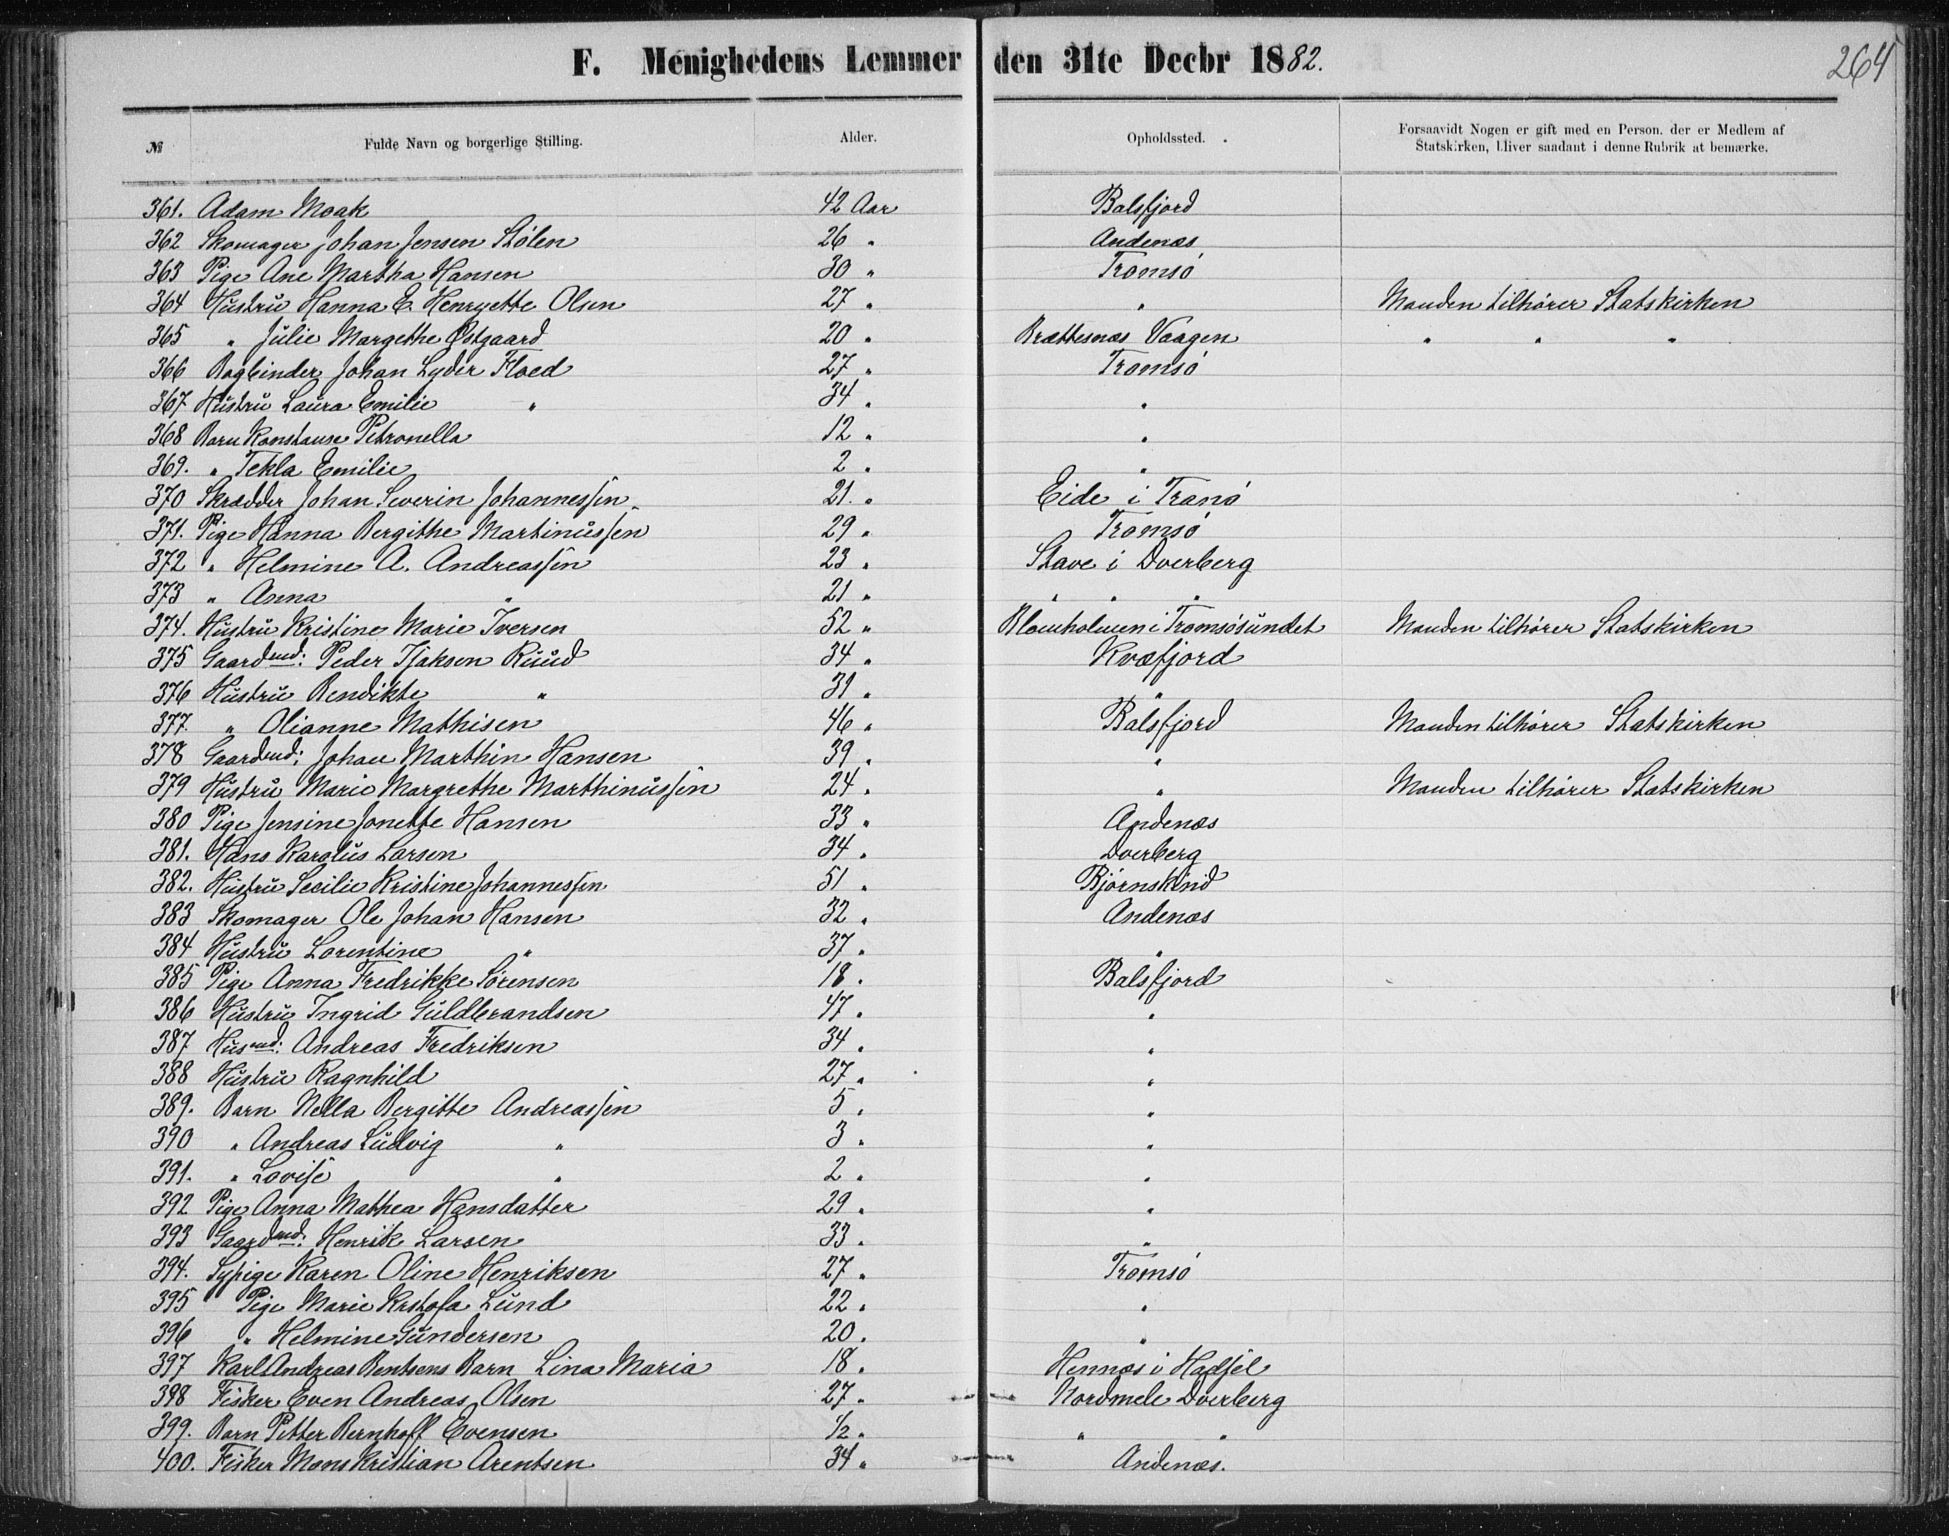 F. Menighedens Lemmer den 31te Decbr 1882.
264
№ Fulde Navn og borgerlige Stilling. Alder. Opholdssted. Forsaavidt Nogen er gift med en Person, der er Medlem af
Statskirken, bliver saadant i denne Rubrik at bemærke.
361. Adam Moak 42 Aar Balsfjord
362 Skomager Johan Jensen Stølen 26 " Andenæs
363 Pige Ane Martha Hansen 30 " Tromsø
364 Hustru Hanna E. Henryette Olsen 27 " " Manden tilhører Statskirken
365 " Julie Margethe Østgaard 20 " Brættesnæs Vaagen " " "
366 Bogbinder Johan Lyder Floed 27 " Tromsø
367 Hustru Laura Emilie " 34 " "
368 Barn Konstanse Petronella 12 " "
369. " Tekla Emilie 2 " "
370 Skrædder Johan Severin Johannessen 21. " Eide i Tranø
371. Pige Hanna Bergithe Martinussen 29 " Tromsø
372 " Helmine A. Andreassen 23 " Stave i Dverberg
373 " Anna " 21 " " " "
374. Hustru Kristine Marie Iversen 52 " Blomholmen i Tromsøsundet Manden tilhører Statskirken
375 Gaardmd: Peder Isaksen Ruud 34 " Kvæfjord
376 Hustru Bendikte " 31 " "
377. " Olianne Mathisen 46 " Balsfjord Manden tilhører Statskirken
378 Gaardmd: Johan Marthin Hansen 39 " "
379 Hustru Marie Margrethe Marthinussen 24 " " Manden tilhører Statskirken
380 Pige Jensine Jonette Hansen 33 " Andenæs
381. Hans Karolus Larsen 34 " Dverberg
382. Hustru Secilie Kristine Johannessen 51 " Bjørnskind
383 Skomager Ole Johan Hansen 32 " Andenæs
384 Hustru Lorentine " 37 " "
385 Pige Anna Fredrikke Sørensen 18 " Balsfjord
386 Hustru Ingrid Guldbrandsen 47 " "
387 Husmd: Andreas Fredriksen 34 " "
388 Hustru Ragnhild 27 " "
389. Barn Nella Bergitte Andreassen 5 " "
390 " Andreas Ludvig " 3 " "
391. " Lovise " 2 " "
392 Pige Anna Mathea Hansdatter 29 " "
393 Gaardmd: Henrik Larsen 33 " "
394. Sypige Karen Oline Henriksen 27 " Tromsø
395 Pige Marie Krstofa Lund 22 " "
396 " Helmine Gundersen 20 " "
397 Karl Andreas Bentsens Barn Lina Maria 18 " Hennæs i Hadsel
398 Fisker Even Andreas Olsen 27 " Nordmele Dverberg
399. Barn Petter Bernhoff Evensen ½ " " "
400. Fisker Mons Kristian Arentsen 34 " Andenæs.